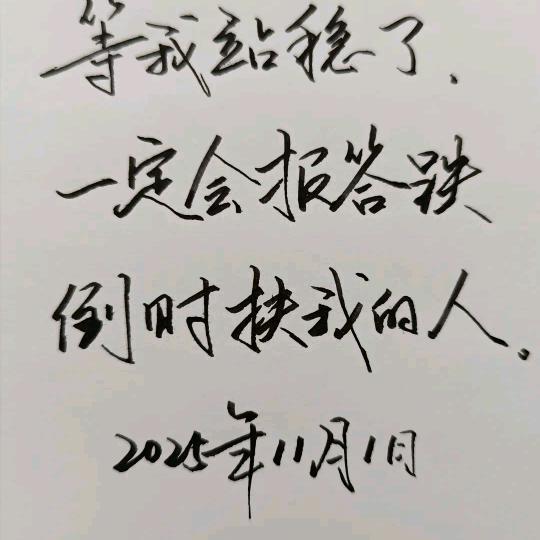 等我站稳了、
一定会报答跌
倒时扶我的人。
2025年11月1日